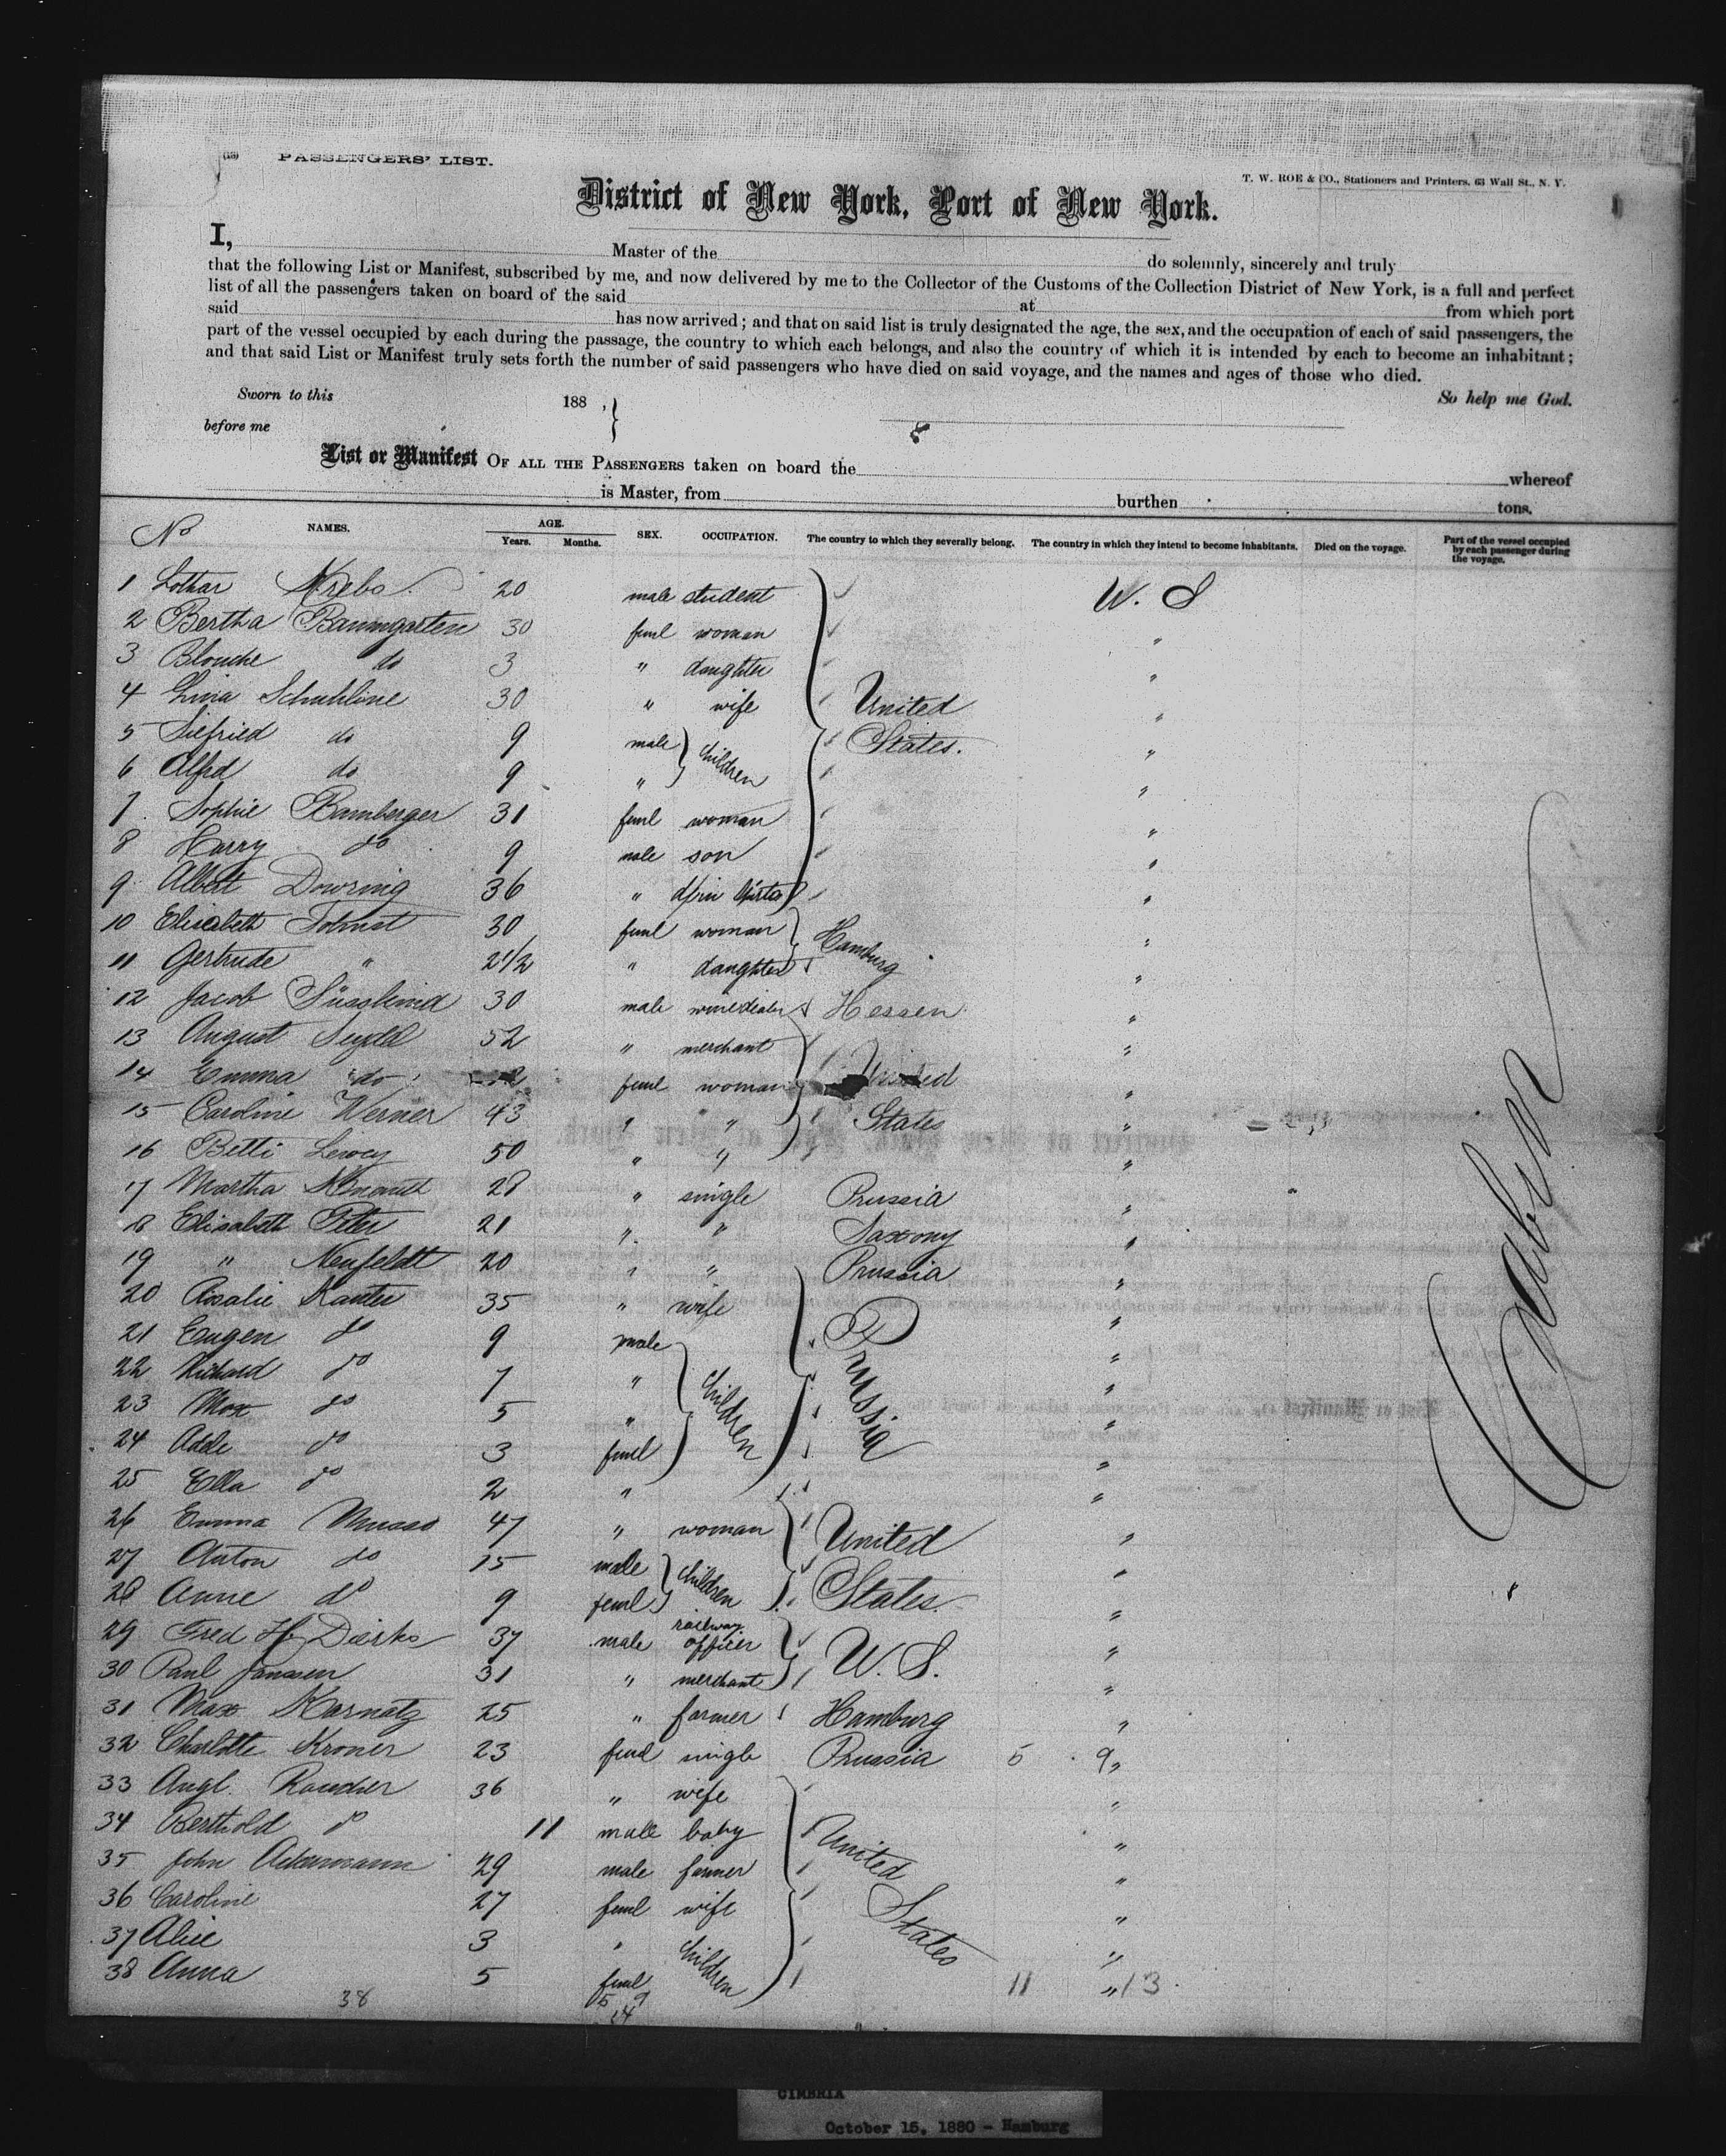 PASSENGERS' LIST.
T. W. ROE & CO., Stationers and Printers, 63 Wall St., N. Y.
District of New York, Port of New York.
I, Master of the do solemnly, sincerely and truly
that the following List or Manifest, subscribed by me, and now delivered by me to the Collector of the Customs of the Collection District of New York, is a full and perfect
list of all the passengers taken on board of the said at from which port
said has now arrived; and that on said list is truly designated the age, the sex, and the occupation of each of said passengers, the
part of the vessel occupied by each during the passage, the country to which each belongs, and also the country of which it is intended by each to become an inhabitant;
and that said List or Manifest truly sets forth the number of said passengers who have died on said voyage, and the names and ages of those who died.
Sworn to this 188 , So help me God.
before me
List or Manifest OF ALL THE PASSENGERS taken on board the whereof
is Master, from burthen tons.
No NAMES. AGE. Years. Months. SEX. OCCUPATION. The country to which they severally belong. The country in which they intend to become inhabitants. Died on the voyage. Part of the vessel occupied by each passenger during the voyage.
1 Lothar Krebs 20 male student U. S
2 Bertha Baumgarten 30 feml woman "
3 Blouche do 3 " daughter "
4 Lina 30 " wife United "
5 Siefried do 9 male children States. "
6 Alfrd do 9 " "
7 Sophie Bamberger 31 feml woman "
8 Harry do 9 male son "
9 Albert Dowring 36 " "
10 Elisabeth 30 feml woman Hamburg "
11 Gertrude " 2 1/2 " daughter "
12 Jacob Süsskind 30 male winedealer Hessen "
13 August 52 " merchant "
14 Emma do feml woman United "
15 Caroline Werner 43 " " States "
16 Betti 50 " " "
17 Martha 28 " single Prussia "
18 Elisabeth Peter 21 " " Saxony "
19 " Neufeldt 20 " " Prussia "
20 Rosalie Kanter 35 " wife Prussia "
21 Eugen do 9 male children "
22 Richard do 7 " "
23 Max do 5 " "
24 Adele do 3 feml "
25 Ella do 2 " "
26 Emma Musso 47 " woman United "
27 Anton do 15 male children "
28 Anne do 9 feml States. "
29 Fred H. Dierks 37 male railway officer U. S. "
30 Paul Janssen 31 " merchant "
31 Max Karnatz 25 " farmer Hamburg "
32 Charlotte Kroner 23 feml single Prussia 5 9 "
33 Augl. 36 " wife "
34 Berthold do 11 male baby United "
35 John Ackermann 29 male farmer "
36 Caroline 27 feml wife States "
37 Alice 3 " children "
38 Anna 5 feml 11 " 13
38 5 9
14
Cabin
CIMBRIA
October 15, 1880 - Hamburg